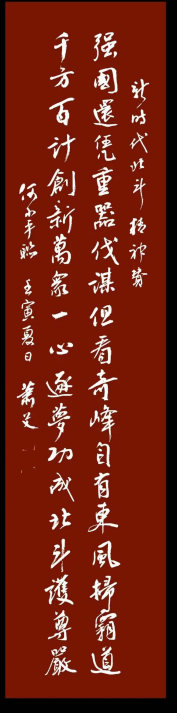 新时代北斗精神赞
强国还凭重器伐谋但看奇峰自有東風掃霸道
千方百计創新萬眾一心逐夢功成北斗護尊嚴
何小平联 壬寅夏日 萧